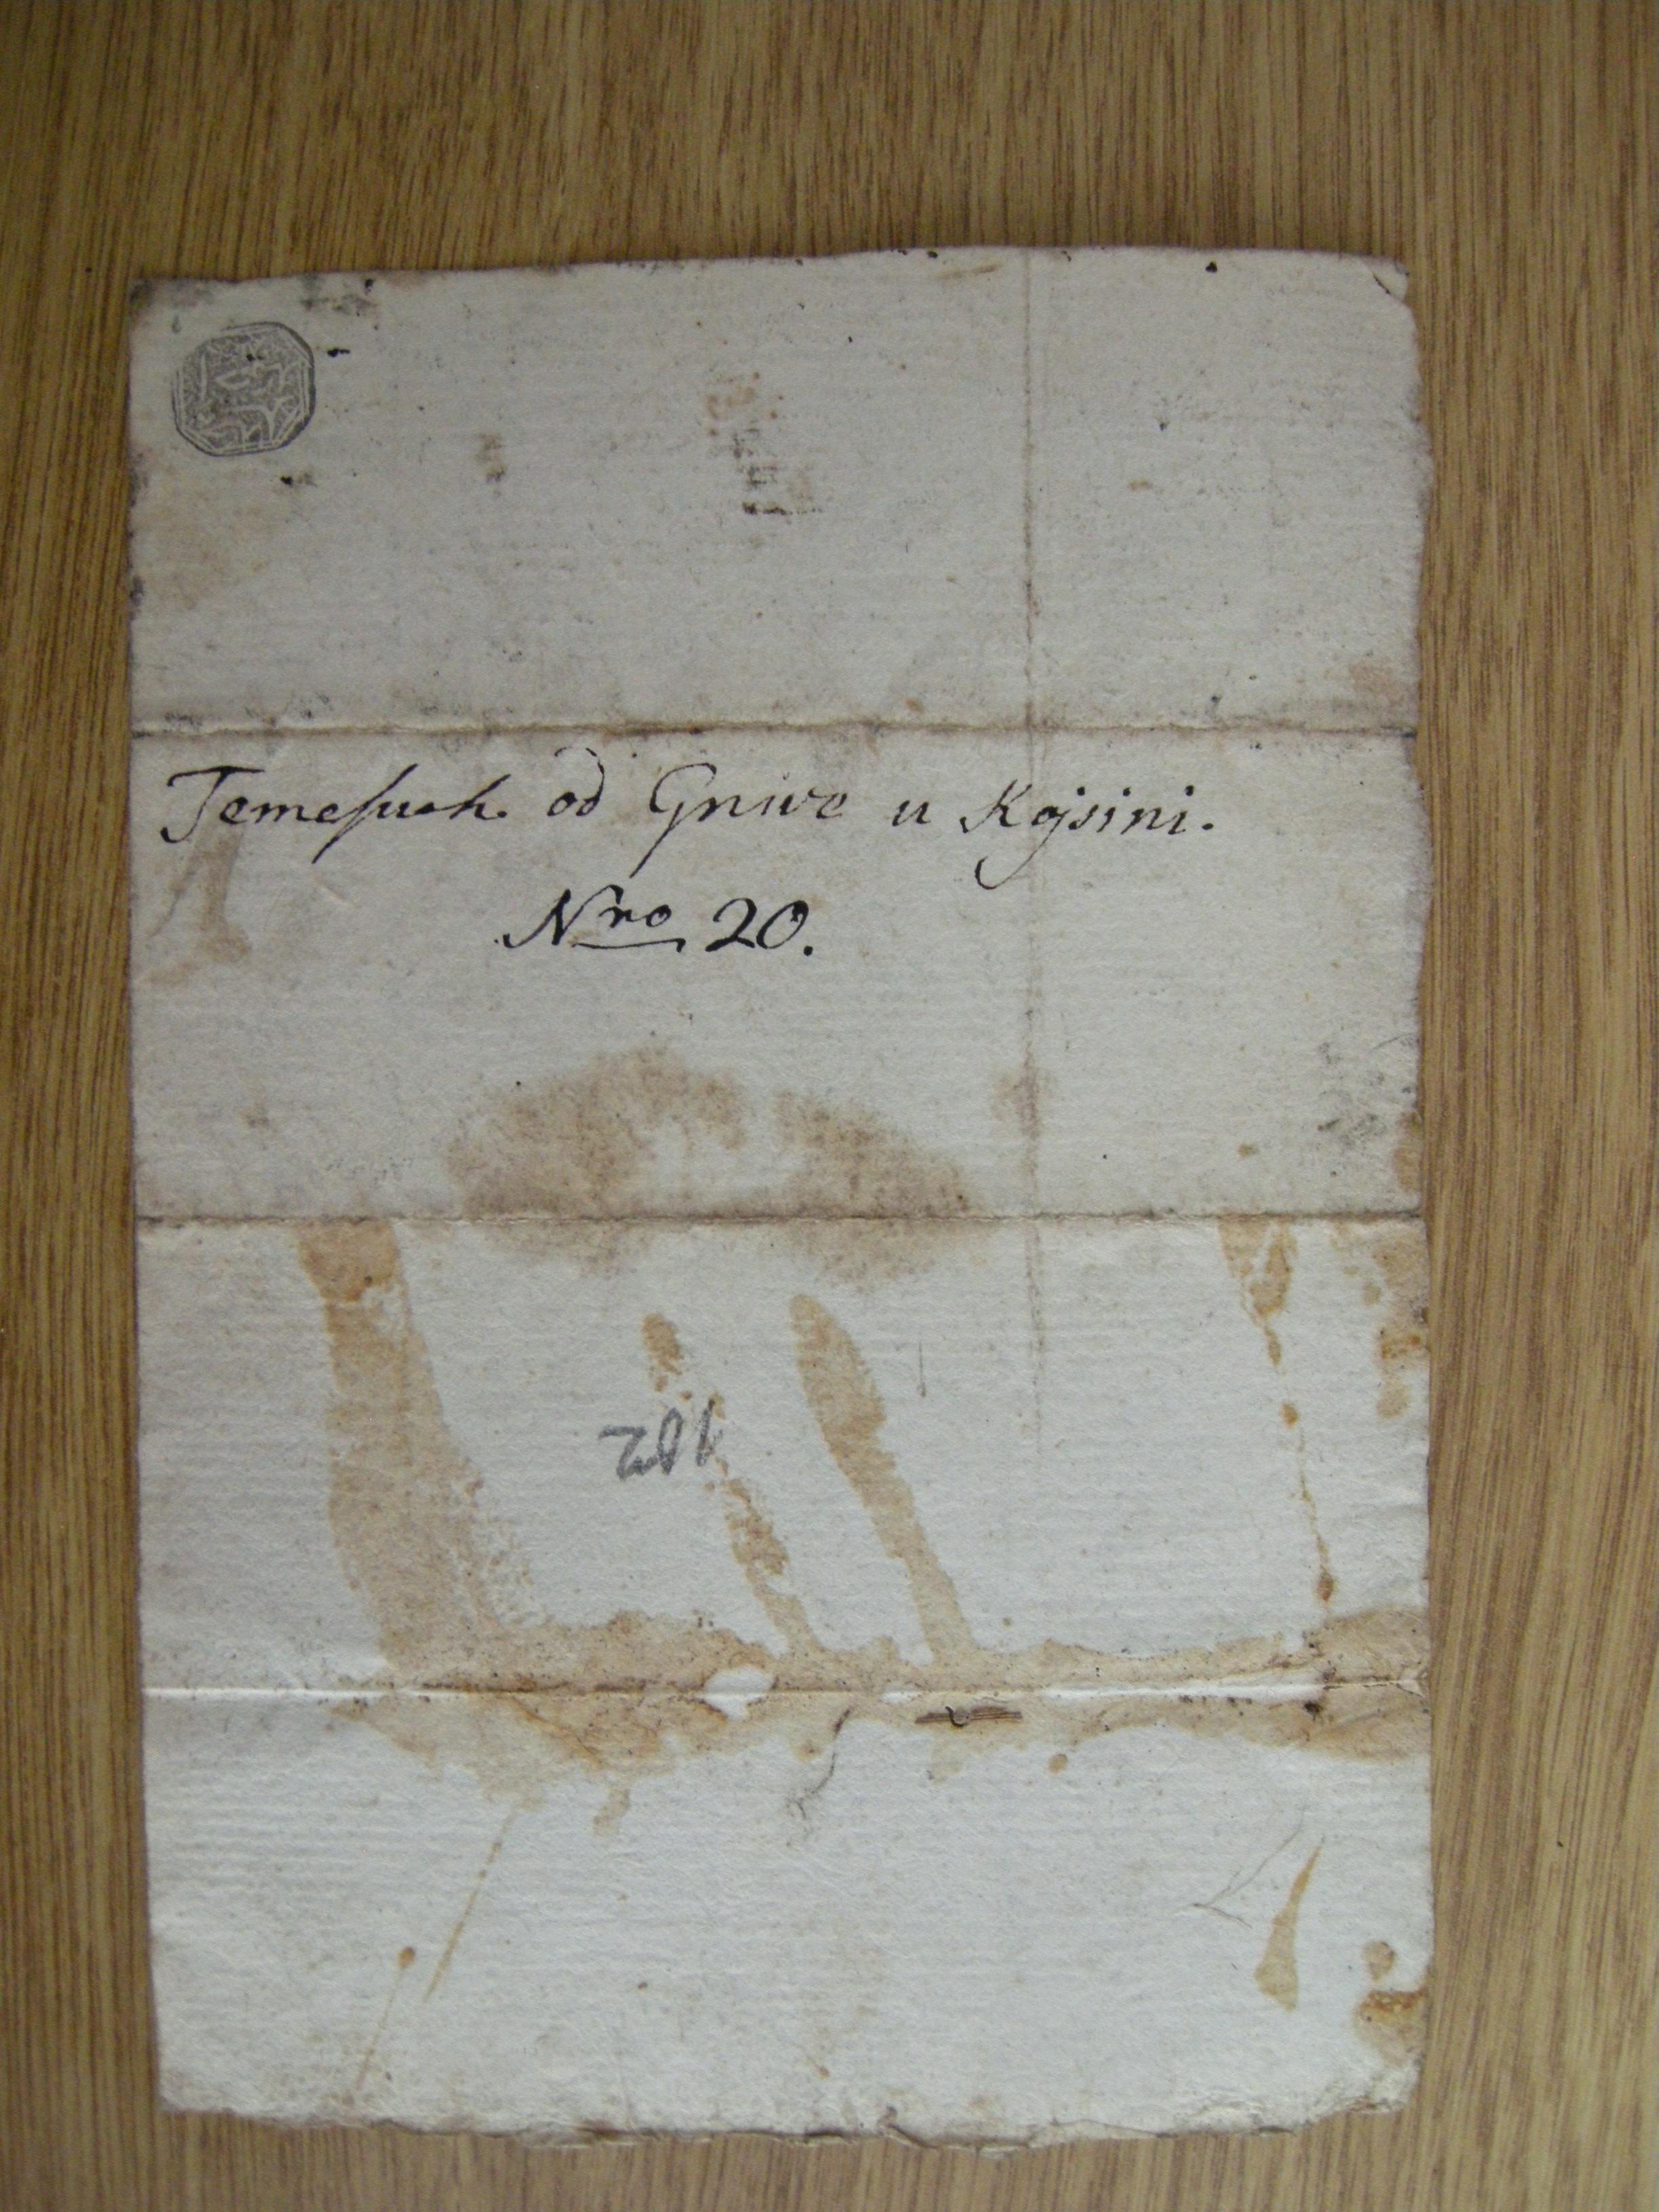 Temessuch od Gnive u Kojsini.
Nro 20.
182